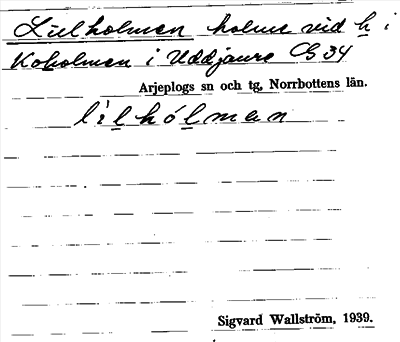 Lillholmen holme vid h i
Koholmen i Uddjaure GS 34
Arjeplogs sn och tg, Norrbottens län.
lilhólman
Sigvard Wallström, 1939.